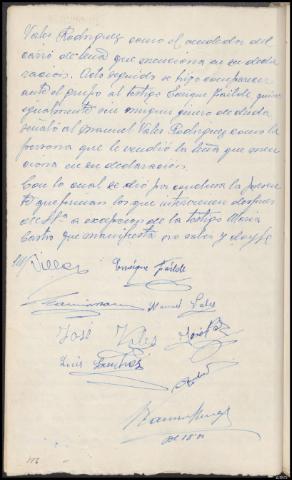 Vales Rodriguez como el vendedor del
carro de leña que menciona en su decla
racion. Acto seguido se hizo comparecer
ante el grupo al testigo Enrique Failde quien
igualmente sin ningun genero de duda
señaló al Manuel Vales Rodriguez como la
persona que le vendió la leña que men
ciona en su declaración.
Con lo cual se dió por conclusa la presen
te que firman los que intervienen despues
de Sª a excepcion de la testigo Maria
Castro que manifiesta no saber y doy fe
Enrique Failde
Manuel Vales
José Vales
Luis Sanchez